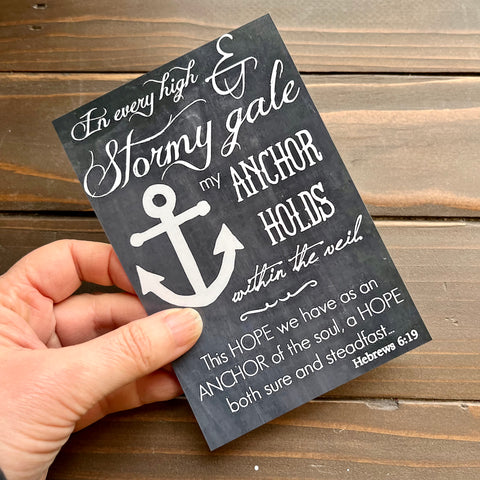 In every high &
Stormy gale
my ANCHOR
HOLDS
within the veil.
This HOPE we have as an
ANCHOR of the soul, a HOPE
both sure and steadfast...
Hebrews 6:19